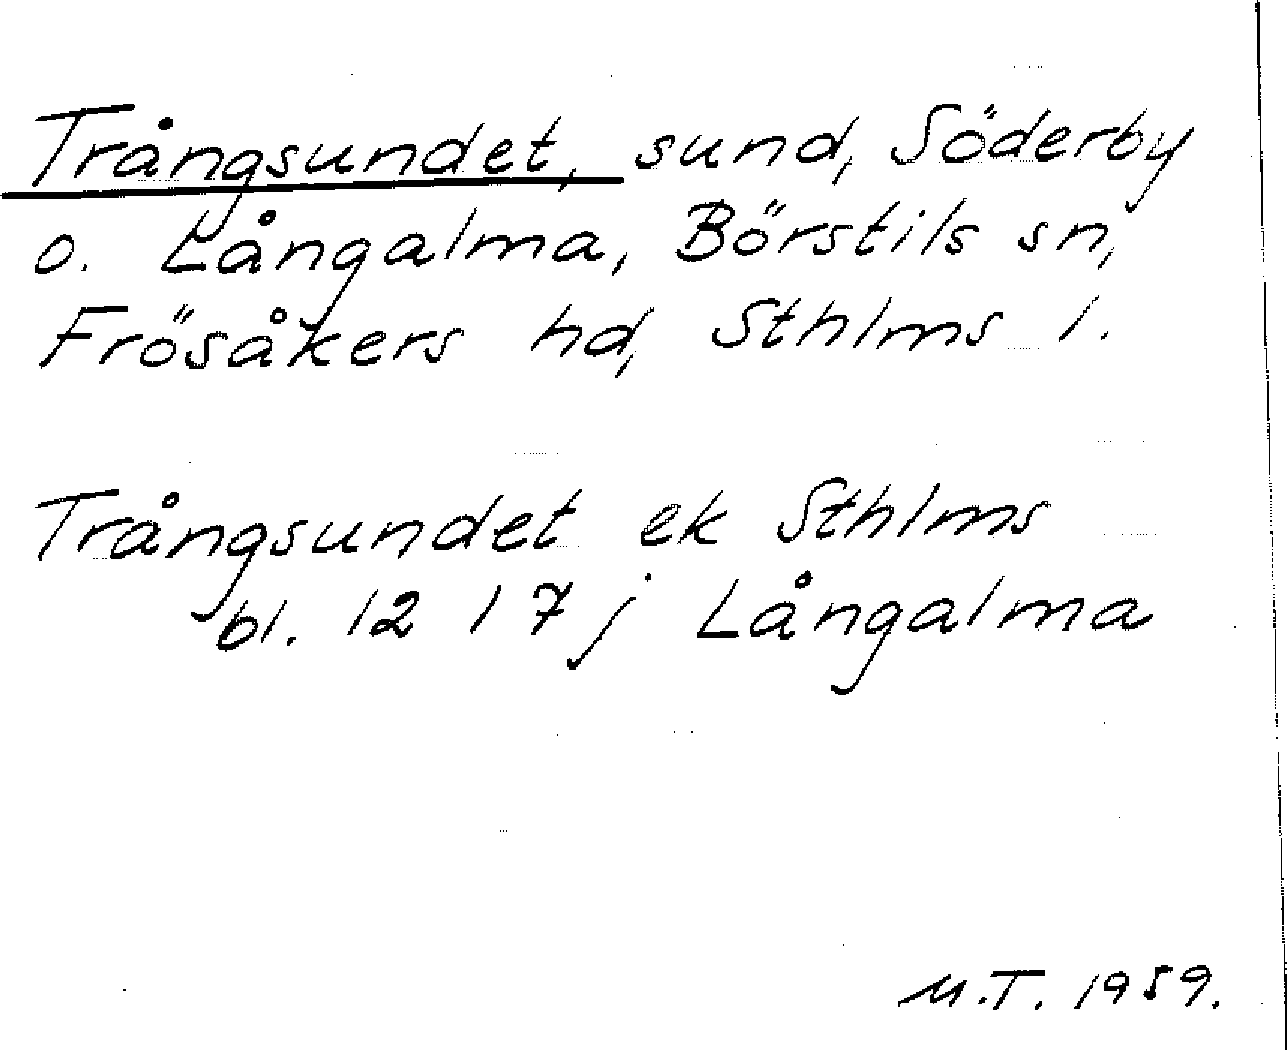 Trångsundet, sund, Söderby
o. Långalma, Börstils sn,
Frösåkers hd, Sthlms l.
Trångsundet ek Sthlms
bl. 12 I 7 j Långalma
M.T. 1959.